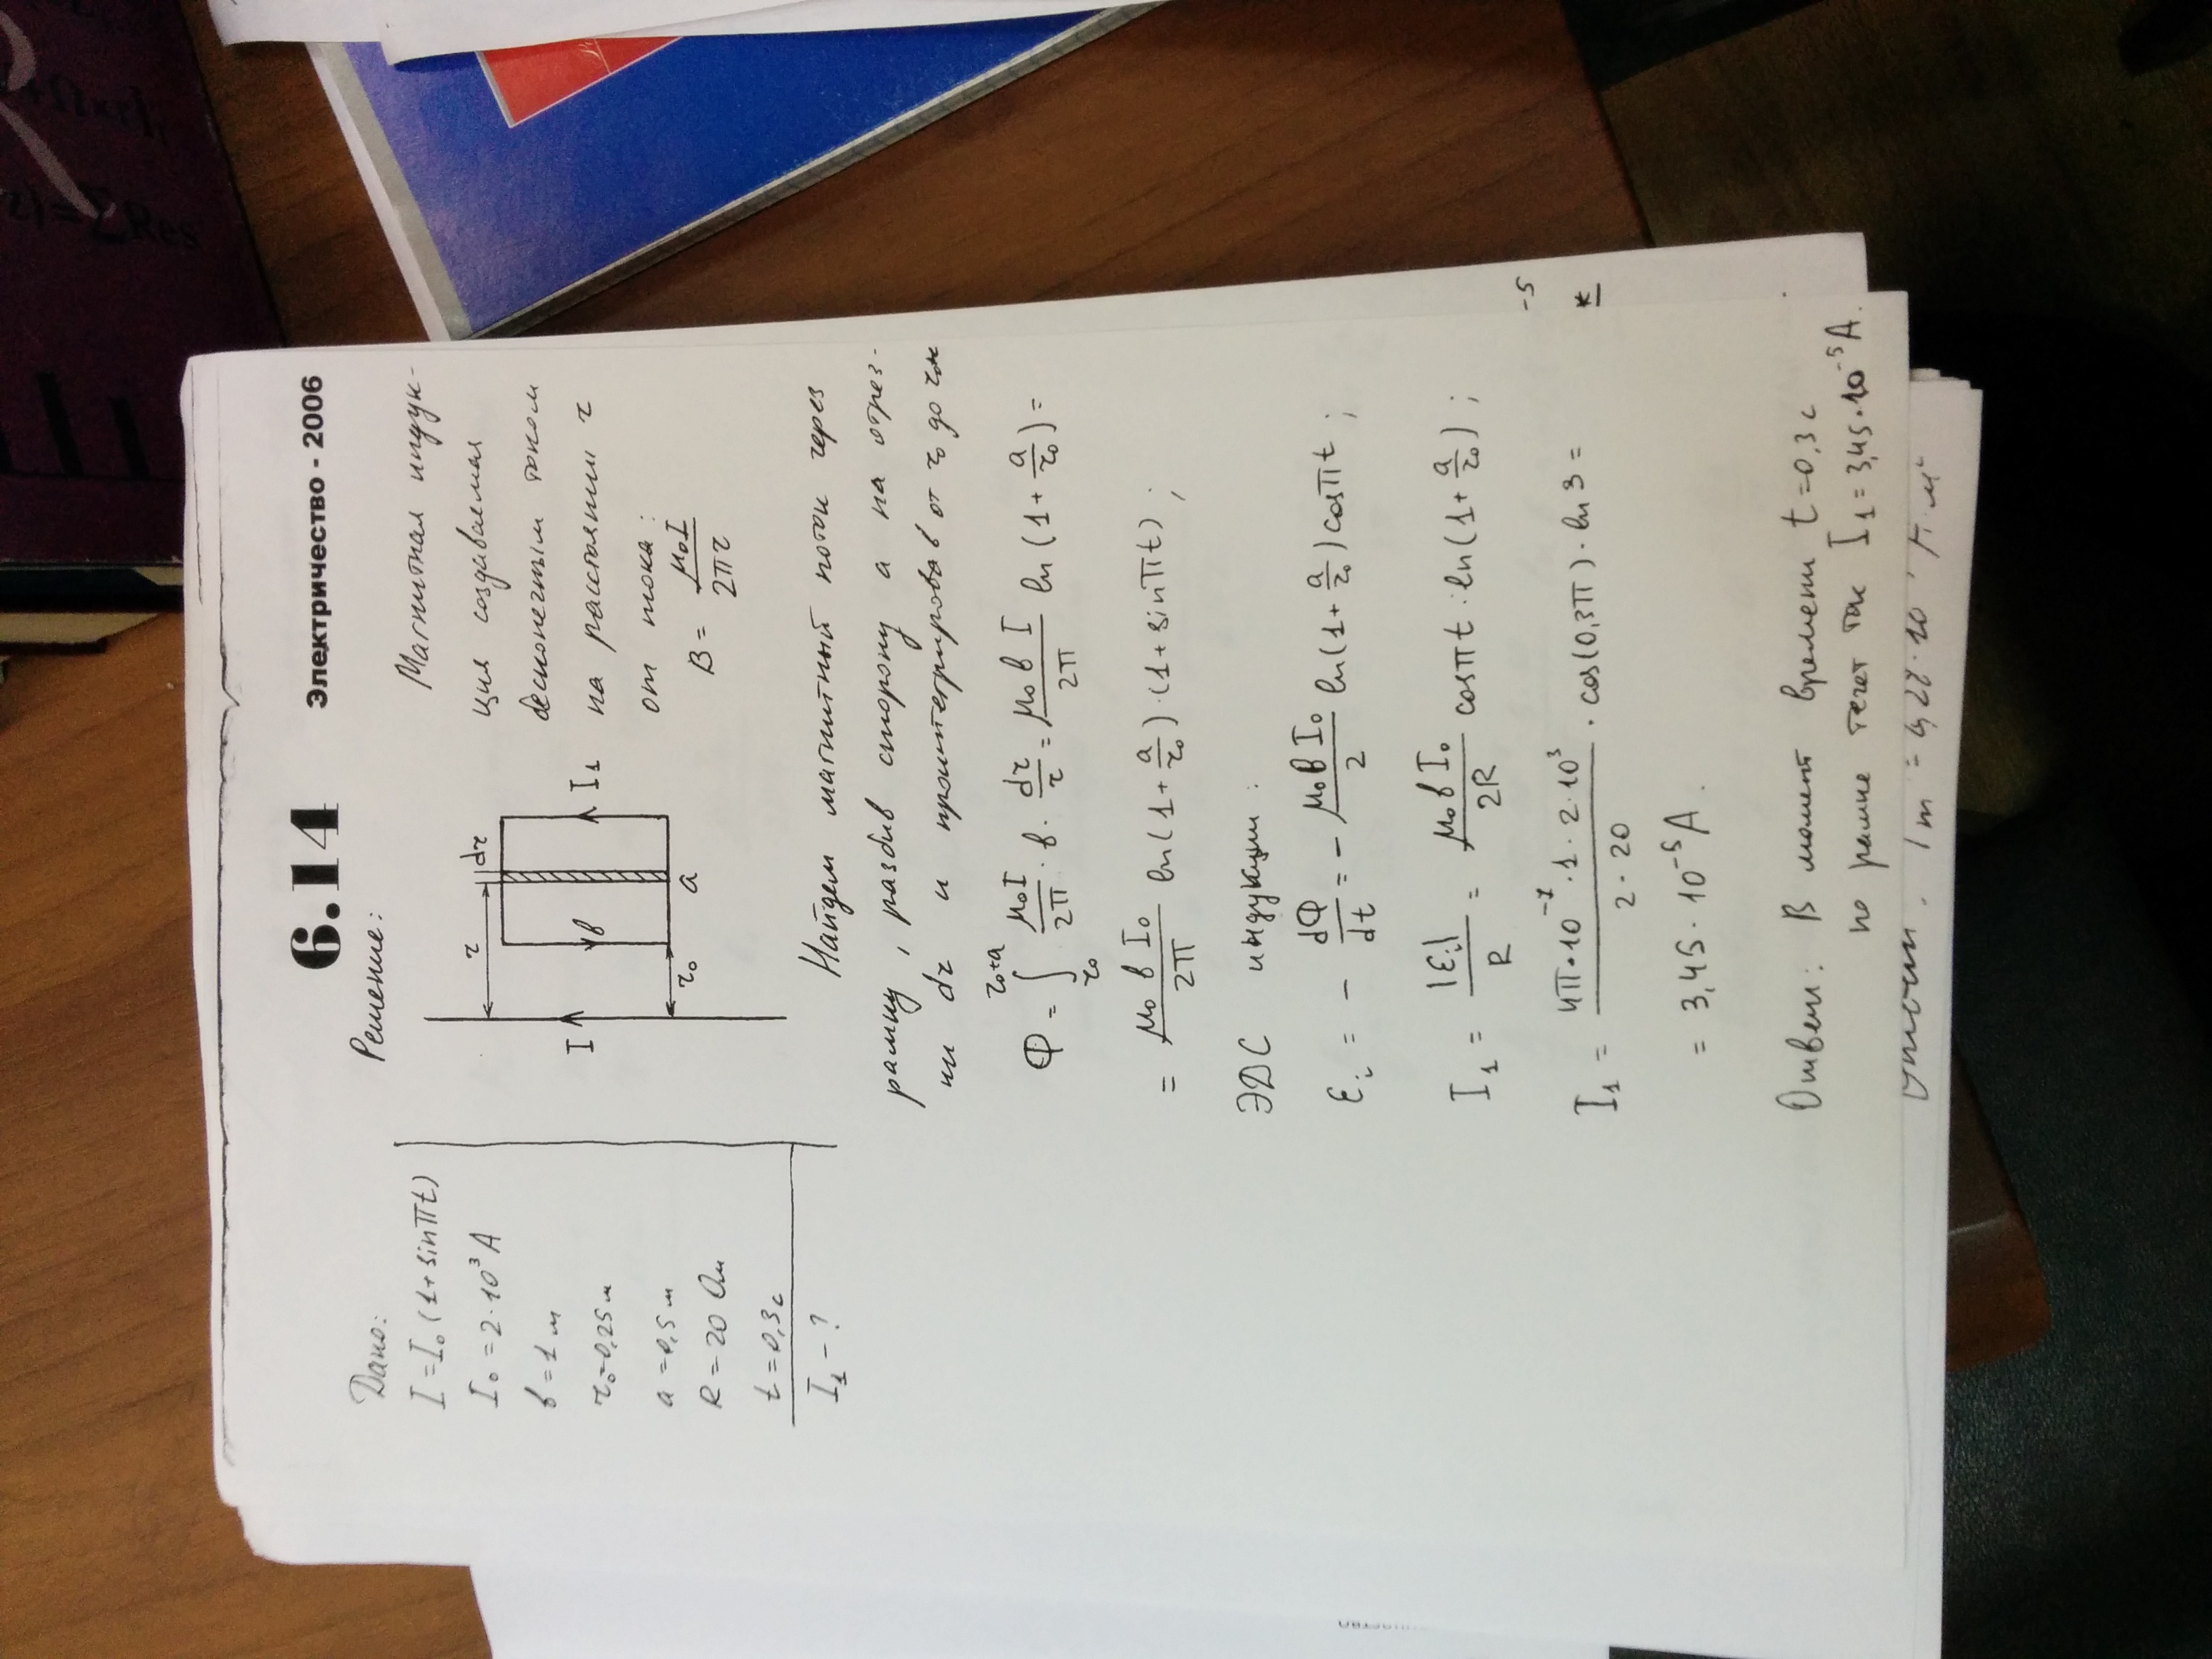 6.14 Электричество - 2006
Дано:
I = I₀(1+sinπt)
I₀ = 2·10³ А
в = 1 м
r₀ = 0,25 м
a = 0,5 м
R = 20 Ом
t = 0,3 с
I₁ - ?
Решение:
r dr
I в I₁
r₀ a
Магнитная индук-
ция создаваемая
бесконечным током
на расстоянии r
от тока:
B = μ₀I / 2πr
Найдем магнитный поток через
рамку, разбив сторону a на отрез-
ки dr и проинтегрировав от r₀ до
Φ = ∫_{r₀}^{r₀+a} μ₀I/2π · в · dr/r = μ₀вI/2π ln(1+a/r₀) =
= μ₀вI₀/2π ln(1+a/r₀)·(1+sinπt);
ЭДС индукции:
εᵢ = - dΦ/dt = - μ₀вI₀/2 ln(1+a/r₀)cosπt;
I₁ = |εᵢ|/R = μ₀вI₀/2R cosπt · ln(1+a/r₀);
I₁ = 4π·10⁻⁷·1·2·10³ / 2·20 · cos(0,3π)·ln3 =
-5
= 3,45·10⁻⁵ А.
Ответ: В момент времени t=0,3 с
по рамке течет ток I₁ = 3,45·10⁻⁵ А.
τ) = ΣRes